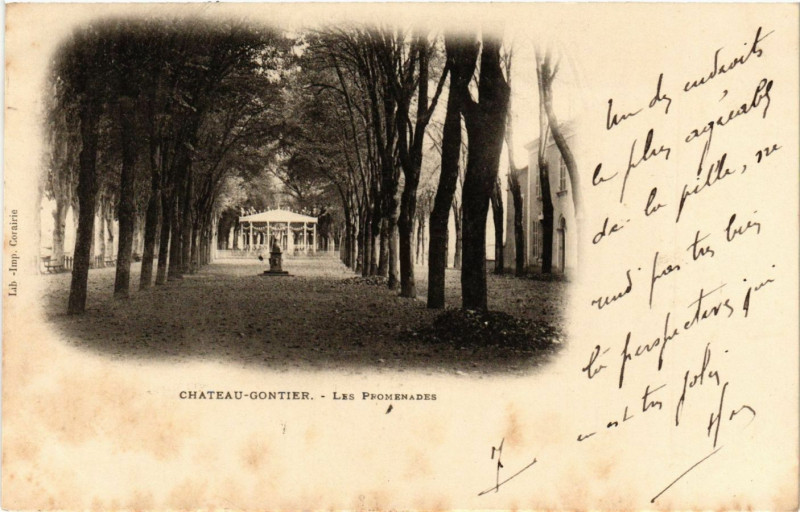 Un des endroits
le plus agréable
de la ville, ne
rend pas très bien
la perspective qui
en est très jolie
Lib -Imp. Corairie
CHATEAU-GONTIER. - LES PROMENADES